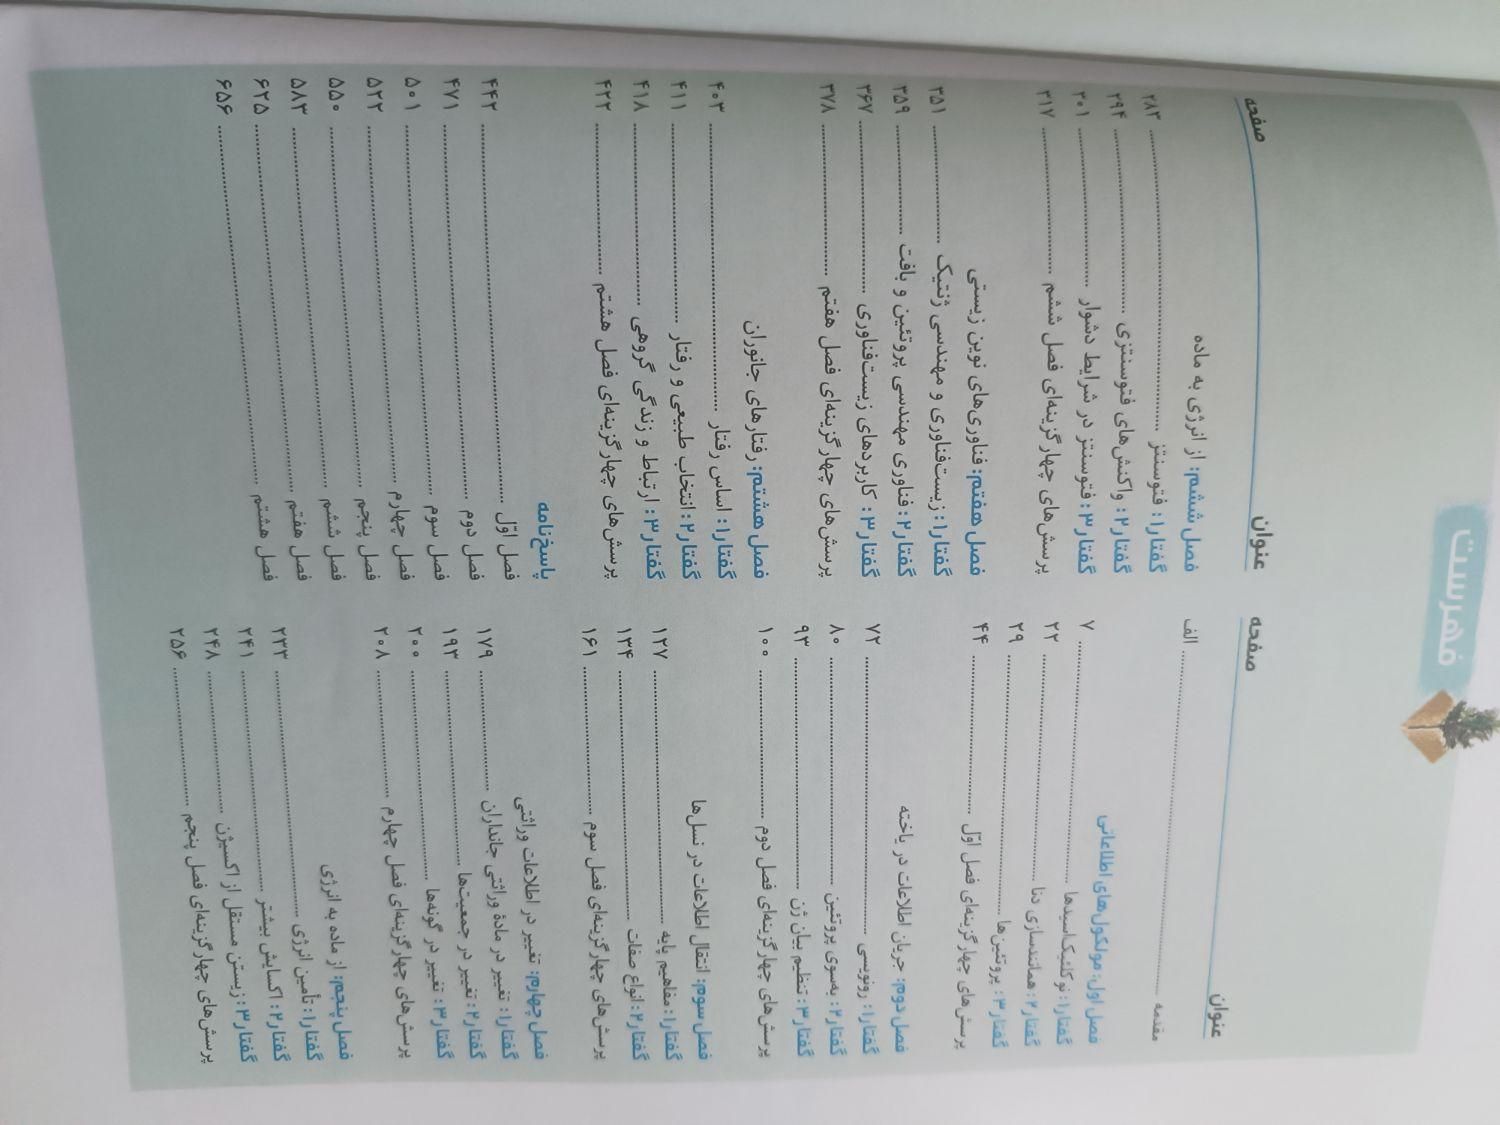 فهرست
عنوان صفحه
مقدمه الف
فصل اول: مولکول‌های اطلاعاتی
گفتار۱: نوکلئیک‌اسیدها ۷
گفتار۲: همانندسازی دنا ۲۲
گفتار۳: پروتئین‌ها ۲۹
پرسش‌های چهارگزینه‌ای فصل اوّل ۴۴
فصل دوم: جریان اطلاعات در یاخته
گفتار۱: رونویسی ۷۲
گفتار۲: به‌سوی پروتئین ۸۰
گفتار۳: تنظیم بیان ژن ۹۳
پرسش‌های چهارگزینه‌ای فصل دوم ۱۰۰
فصل سوم: انتقال اطلاعات در نسل‌ها
گفتار۱: مفاهیم پایه ۱۲۷
گفتار۲: انواع صفات ۱۳۴
پرسش‌های چهارگزینه‌ای فصل سوم ۱۶۱
فصل چهارم: تغییر در اطلاعات وراثتی
گفتار۱: تغییر در مادهٔ وراثتی جانداران ۱۷۹
گفتار۲: تغییر در جمعیت‌ها ۱۹۳
گفتار۳: تغییر در گونه‌ها ۲۰۰
پرسش‌های چهارگزینه‌ای فصل چهارم ۲۰۸
فصل پنجم: از ماده به انرژی
گفتار۱: تأمین انرژی ۲۳۳
گفتار۲: اکسایش بیشتر ۲۴۱
گفتار۳: زیستن مستقل از اکسیژن ۲۴۸
پرسش‌های چهارگزینه‌ای فصل پنجم ۲۵۶
عنوان صفحه
فصل ششم: از انرژی به ماده
گفتار۱: فتوسنتز ۲۸۳
گفتار۲: واکنش‌های فتوسنتزی ۲۹۴
گفتار۳: فتوسنتز در شرایط دشوار ۳۰۱
پرسش‌های چهارگزینه‌ای فصل ششم ۳۱۷
فصل هفتم: فناوری‌های نوین زیستی
گفتار۱: زیست‌فناوری و مهندسی ژنتیک ۳۵۱
گفتار۲: فناوری مهندسی پروتئین و بافت ۳۵۹
گفتار۳: کاربردهای زیست‌فناوری ۳۶۷
پرسش‌های چهارگزینه‌ای فصل هفتم ۳۷۸
فصل هشتم: رفتارهای جانوران
گفتار۱: اساس رفتار ۴۰۳
گفتار۲: انتخاب طبیعی و رفتار ۴۱۱
گفتار۳: ارتباط و زندگی گروهی ۴۱۸
پرسش‌های چهارگزینه‌ای فصل هشتم ۴۲۲
پاسخ‌نامه
فصل اوّل ۴۴۲
فصل دوم ۴۷۱
فصل سوم ۵۰۱
فصل چهارم ۵۲۲
فصل پنجم ۵۵۰
فصل ششم ۵۸۳
فصل هفتم ۶۲۵
فصل هشتم ۶۵۶